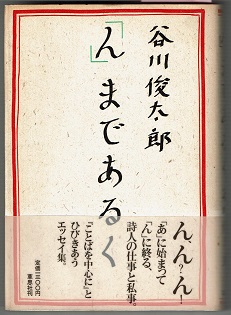 谷川俊太郎
「ん」まであるく
ん、ん？ん！
「あ」に始まって
「ん」に終る、
詩人の仕事と私事。
『ことばを中心に』と
ひびきあう
エッセイ集。
定価一三〇〇円
草思社刊